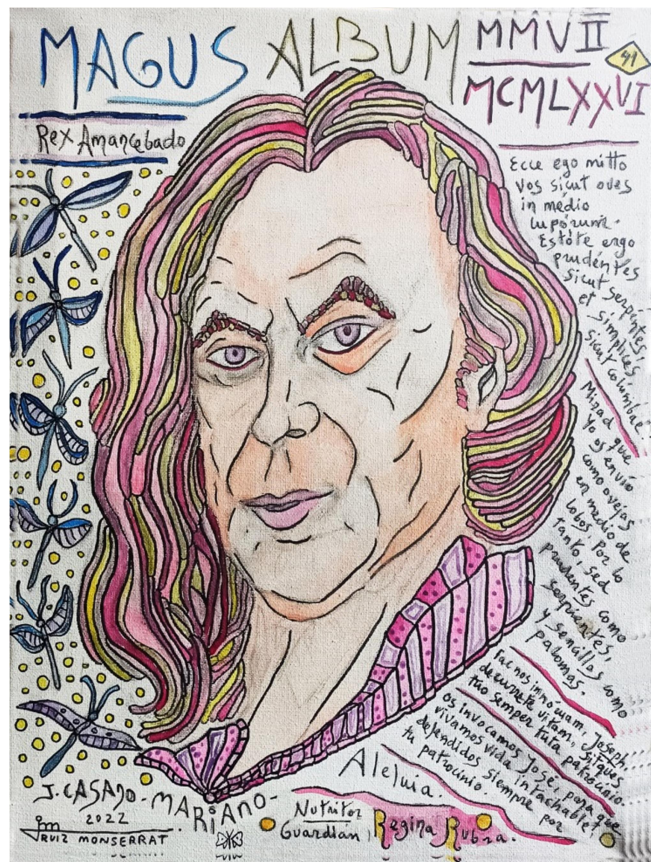 MAGUS ALBUM MMVII
41
MCMLXXVI
Rex Amancebado
Ecce ego mitto
vos sicut oves
in médio
lupórum.
Estóte ergo
prudéntes
sicut serpéntes,
et símplices,
sicut colúmbae.
Mirad que
Yo os envío
como ovejas
en medio de
lobos. Por lo
tanto, sed
prudentes como
serpientes,
y sencillos como
palomas.
Fac nos innócuam, Joseph,
decúrrere vitam, sitque
tuo semper tuta patrocínio.
os invocamos José, para que
vivamos vida intachable y
defendidos siempre por
tu patrocinio.
Aleluia.
J. CASAJO - MARIANO -
2022
jm
RUIZ MONSERRAT.
Nutritor
Guardián, Regina Rubra.